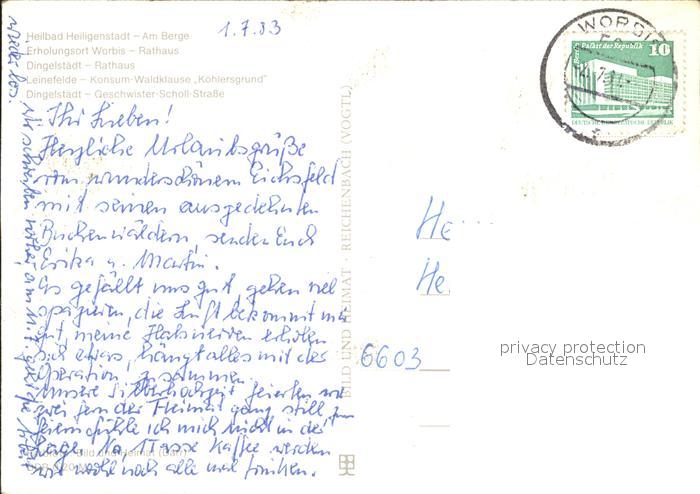 Heilbad Heiligenstadt – Am Berge
Erholungsort Worbis – Rathaus
Dingelstädt – Rathaus
Leinefelde – Konsum-Waldklause „Köhlersgrund"
Dingelstädt – Geschwister-Scholl-Straße
1.7.83
Ihr Lieben!
Herzliche Urlaubsgrüße
vom wunderschönem Eichsfeld
mit seinen ausgedehnten
Buchenwäldern, senden Euch
Erika u. Martin.
Es gefällt uns gut, gehen viel
spazieren, die Luft bekommt mir
gut, meine Halsnerven erholen
sich etwas, hängt alles mit der
Operation zusammen.
Unsere Silberhochzeit feierten wir
zwei fern der Heimat ganz still, zum
feiern fühle ich mich nicht in der
Lage. Na Tasse Kaffee werden
wir wohl noch alle mal trinken.
Wir schreiben
BILD UND HEIMAT · REICHENBACH (VOGTL)
WORBIS
Berlin Palast der Republik
10
DEUTSCHE DEMOKRATISCHE REPUBLIK
He
He
6603
privacy protection
Datenschutz